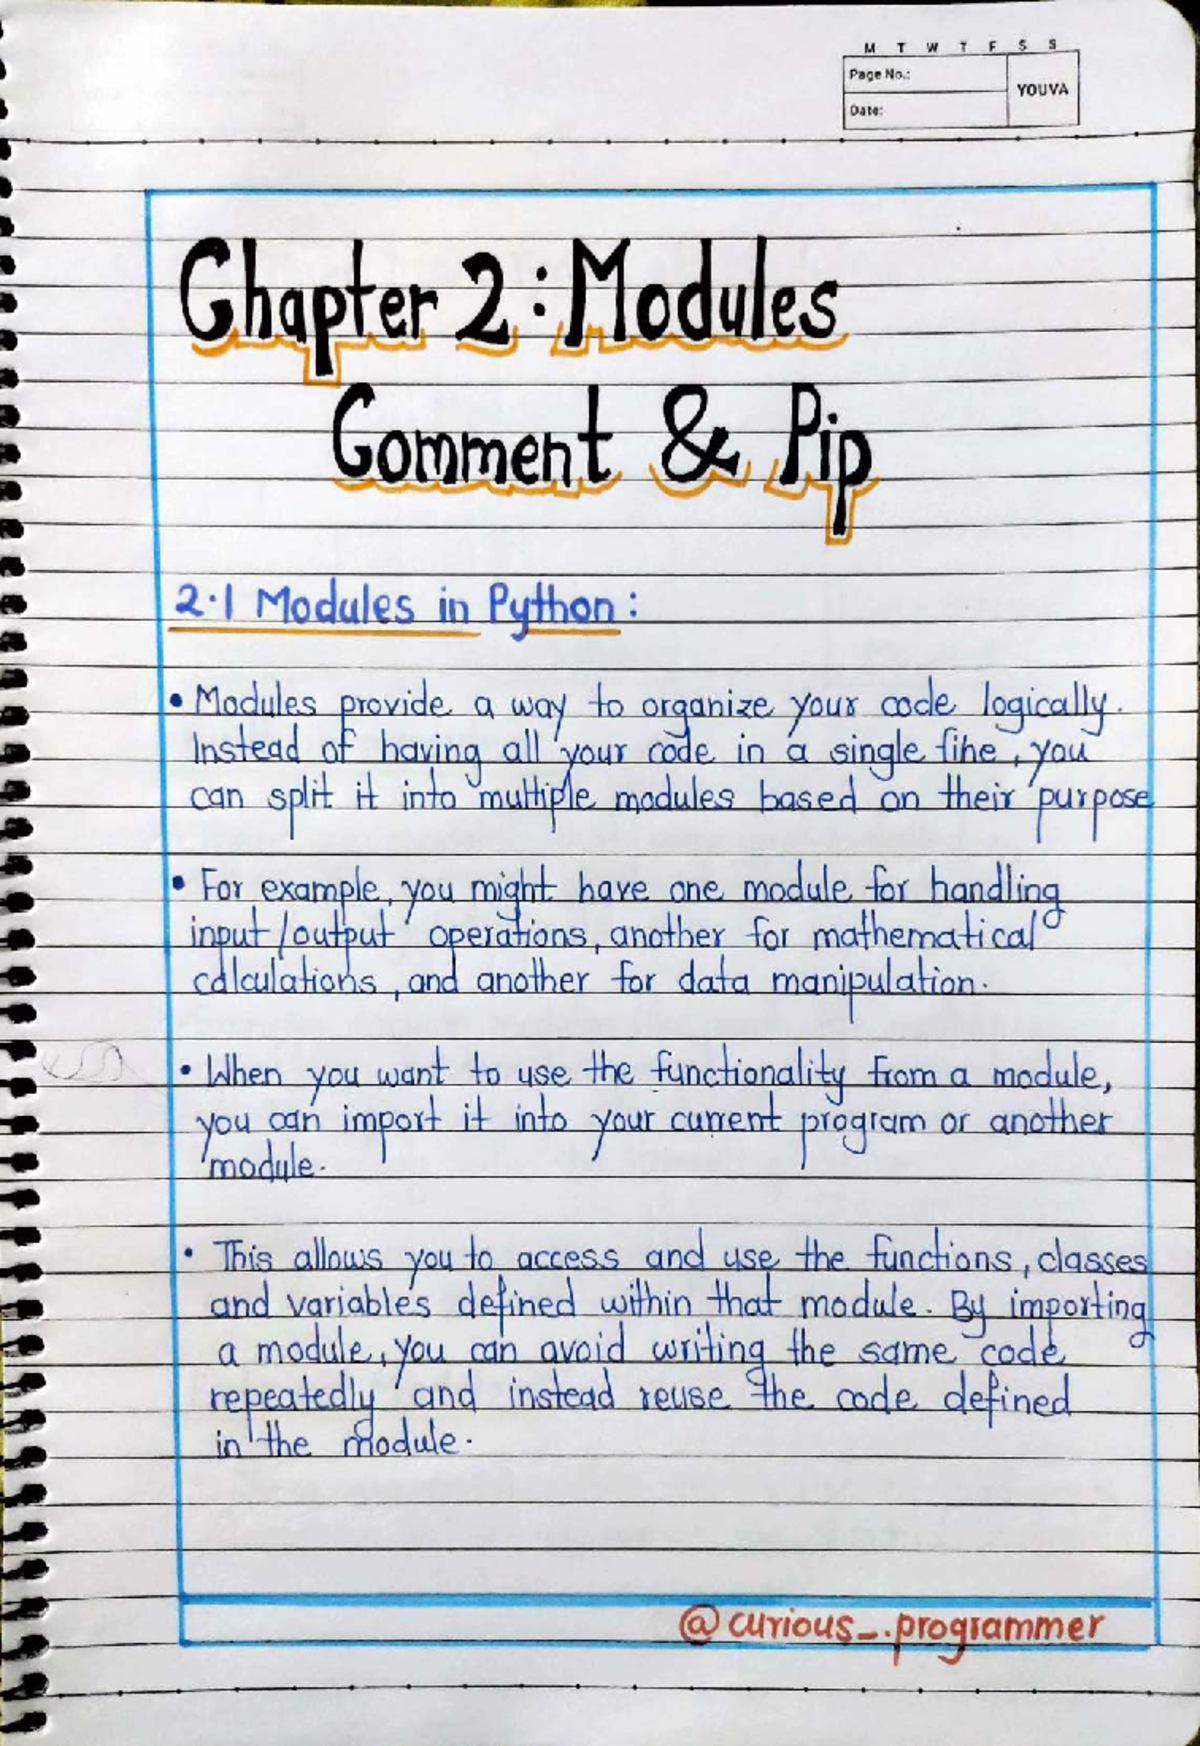 M T W T F S S
Page No.:
YOUVA
Date:
Chapter 2: Modules
Comment & Pip
2.1 Modules in Python:
• Modules provide a way to organize your code logically.
Instead of having all your code in a single fihe, you
can split it into multiple modules based on their purpose
• For example, you might have one module for handling
input/output operations, another for mathematical
calculations, and another for data manipulation.
• When you want to use the functionality from a module,
you can import it into your current program or another
module.
• This allows you to access and use the functions, classes
and variables defined within that module. By importing
a module, you can avoid writing the same code
repeatedly and instead reuse the code defined
in the module.
@curious_.programmer